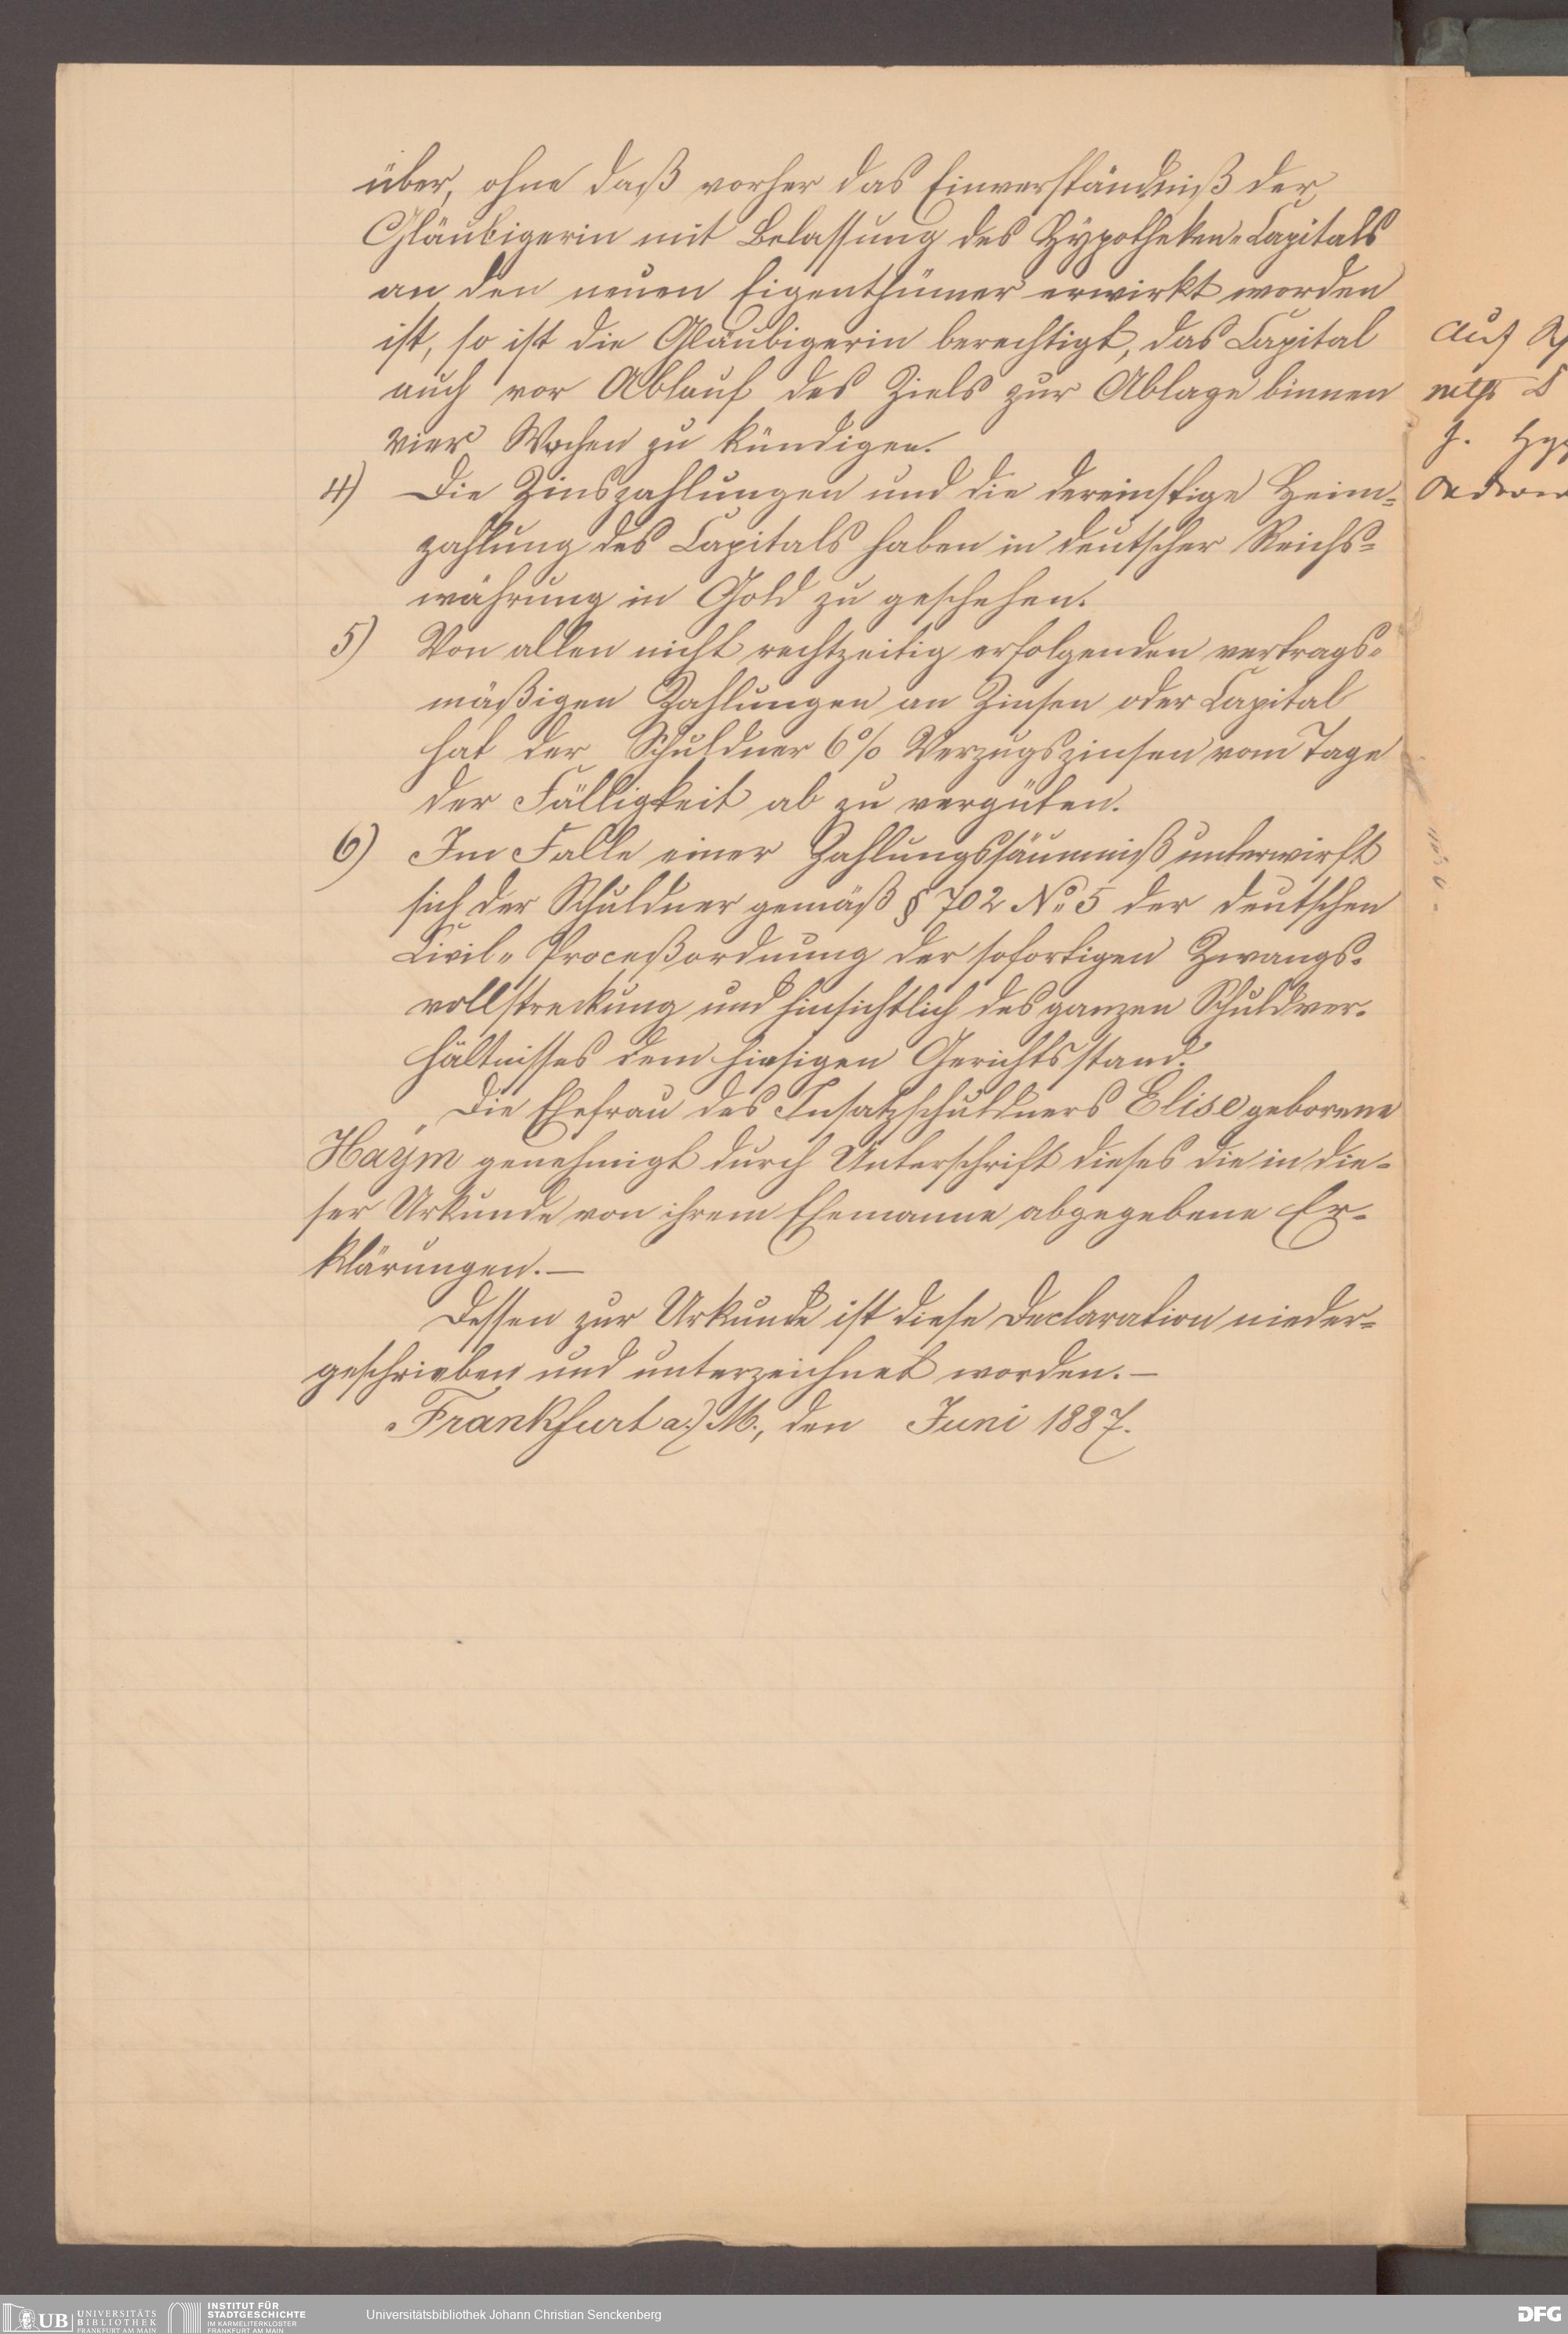 über, ohne daß vorher das Einverständniß der
Gläubigerin mit Belassung des Hypotheken-Capitals
an den neuen Eigenthümer erwirkt worden
ist, so ist die Gläubigerin berechtigt, das Capital
auch vor Ablauf des Ziels zur Ablage binnen
vier Wochen zu kündigen.
4) Die Zinszahlungen und die dereinstige Heim-
zahlung des Capitals haben in deutscher Reichs-
währung in Gold zu geschehen.
5) Von allen nicht rechtzeitig erfolgenden vertrags-
mäßigen Zahlungen an Zinsen oder Capital
hat der Schuldner 6% Verzugszinsen vom Tage
der Fälligkeit ab zu vergüten.
6) Im Falle einer Zahlungssäumniß unterwirft
sich der Schuldner gemäß § 702 No 5 der deutschen
Civil-Proceßordnung der sofortigen Zwangs-
vollstreckung und hinsichtlich des ganzen Schuldver-
hältnisses dem hiesigen Gerichtsstand.
Die Ehefrau des Insatzschuldners Elise geborene
Haÿm genehmigt durch Unterschrift dieses die in die-
ser Urkunde von ihrem Ehemanne abgegebene Er-
klärungen.—
Dessen zur Urkunde ist diese Declaration nieder-
geschrieben und unterzeichnet worden.—
Frankfurt a/M., den Juni 1887.
auf
UB UNIVERSITÄTS
BIBLIOTHEK
FRANKFURT AM MAIN
INSTITUT FÜR
STADTGESCHICHTE
IM KARMELITERKLOSTER
FRANKFURT AM MAIN
Universitätsbibliothek Johann Christian Senckenberg
DFG